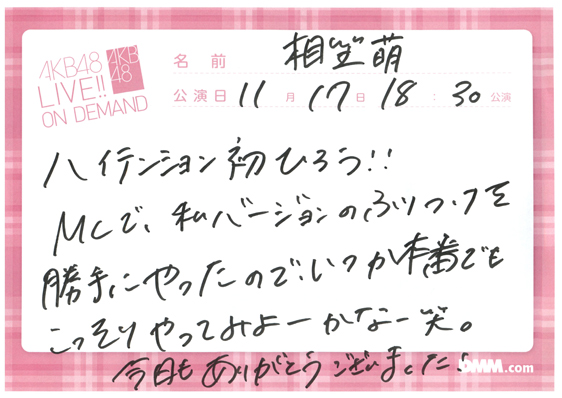 AKB48
LIVE!!
ON DEMAND
AKB
48
名前 相笠萌
公演日 11月17日 18:30公演
ハイテンション初ひろう!!
MCで、私バージョンのふりつけを
勝手にやったので、いつか本番でも
こっそりやってみよーかなー笑。
今日もありがとうございました!
DMM.com